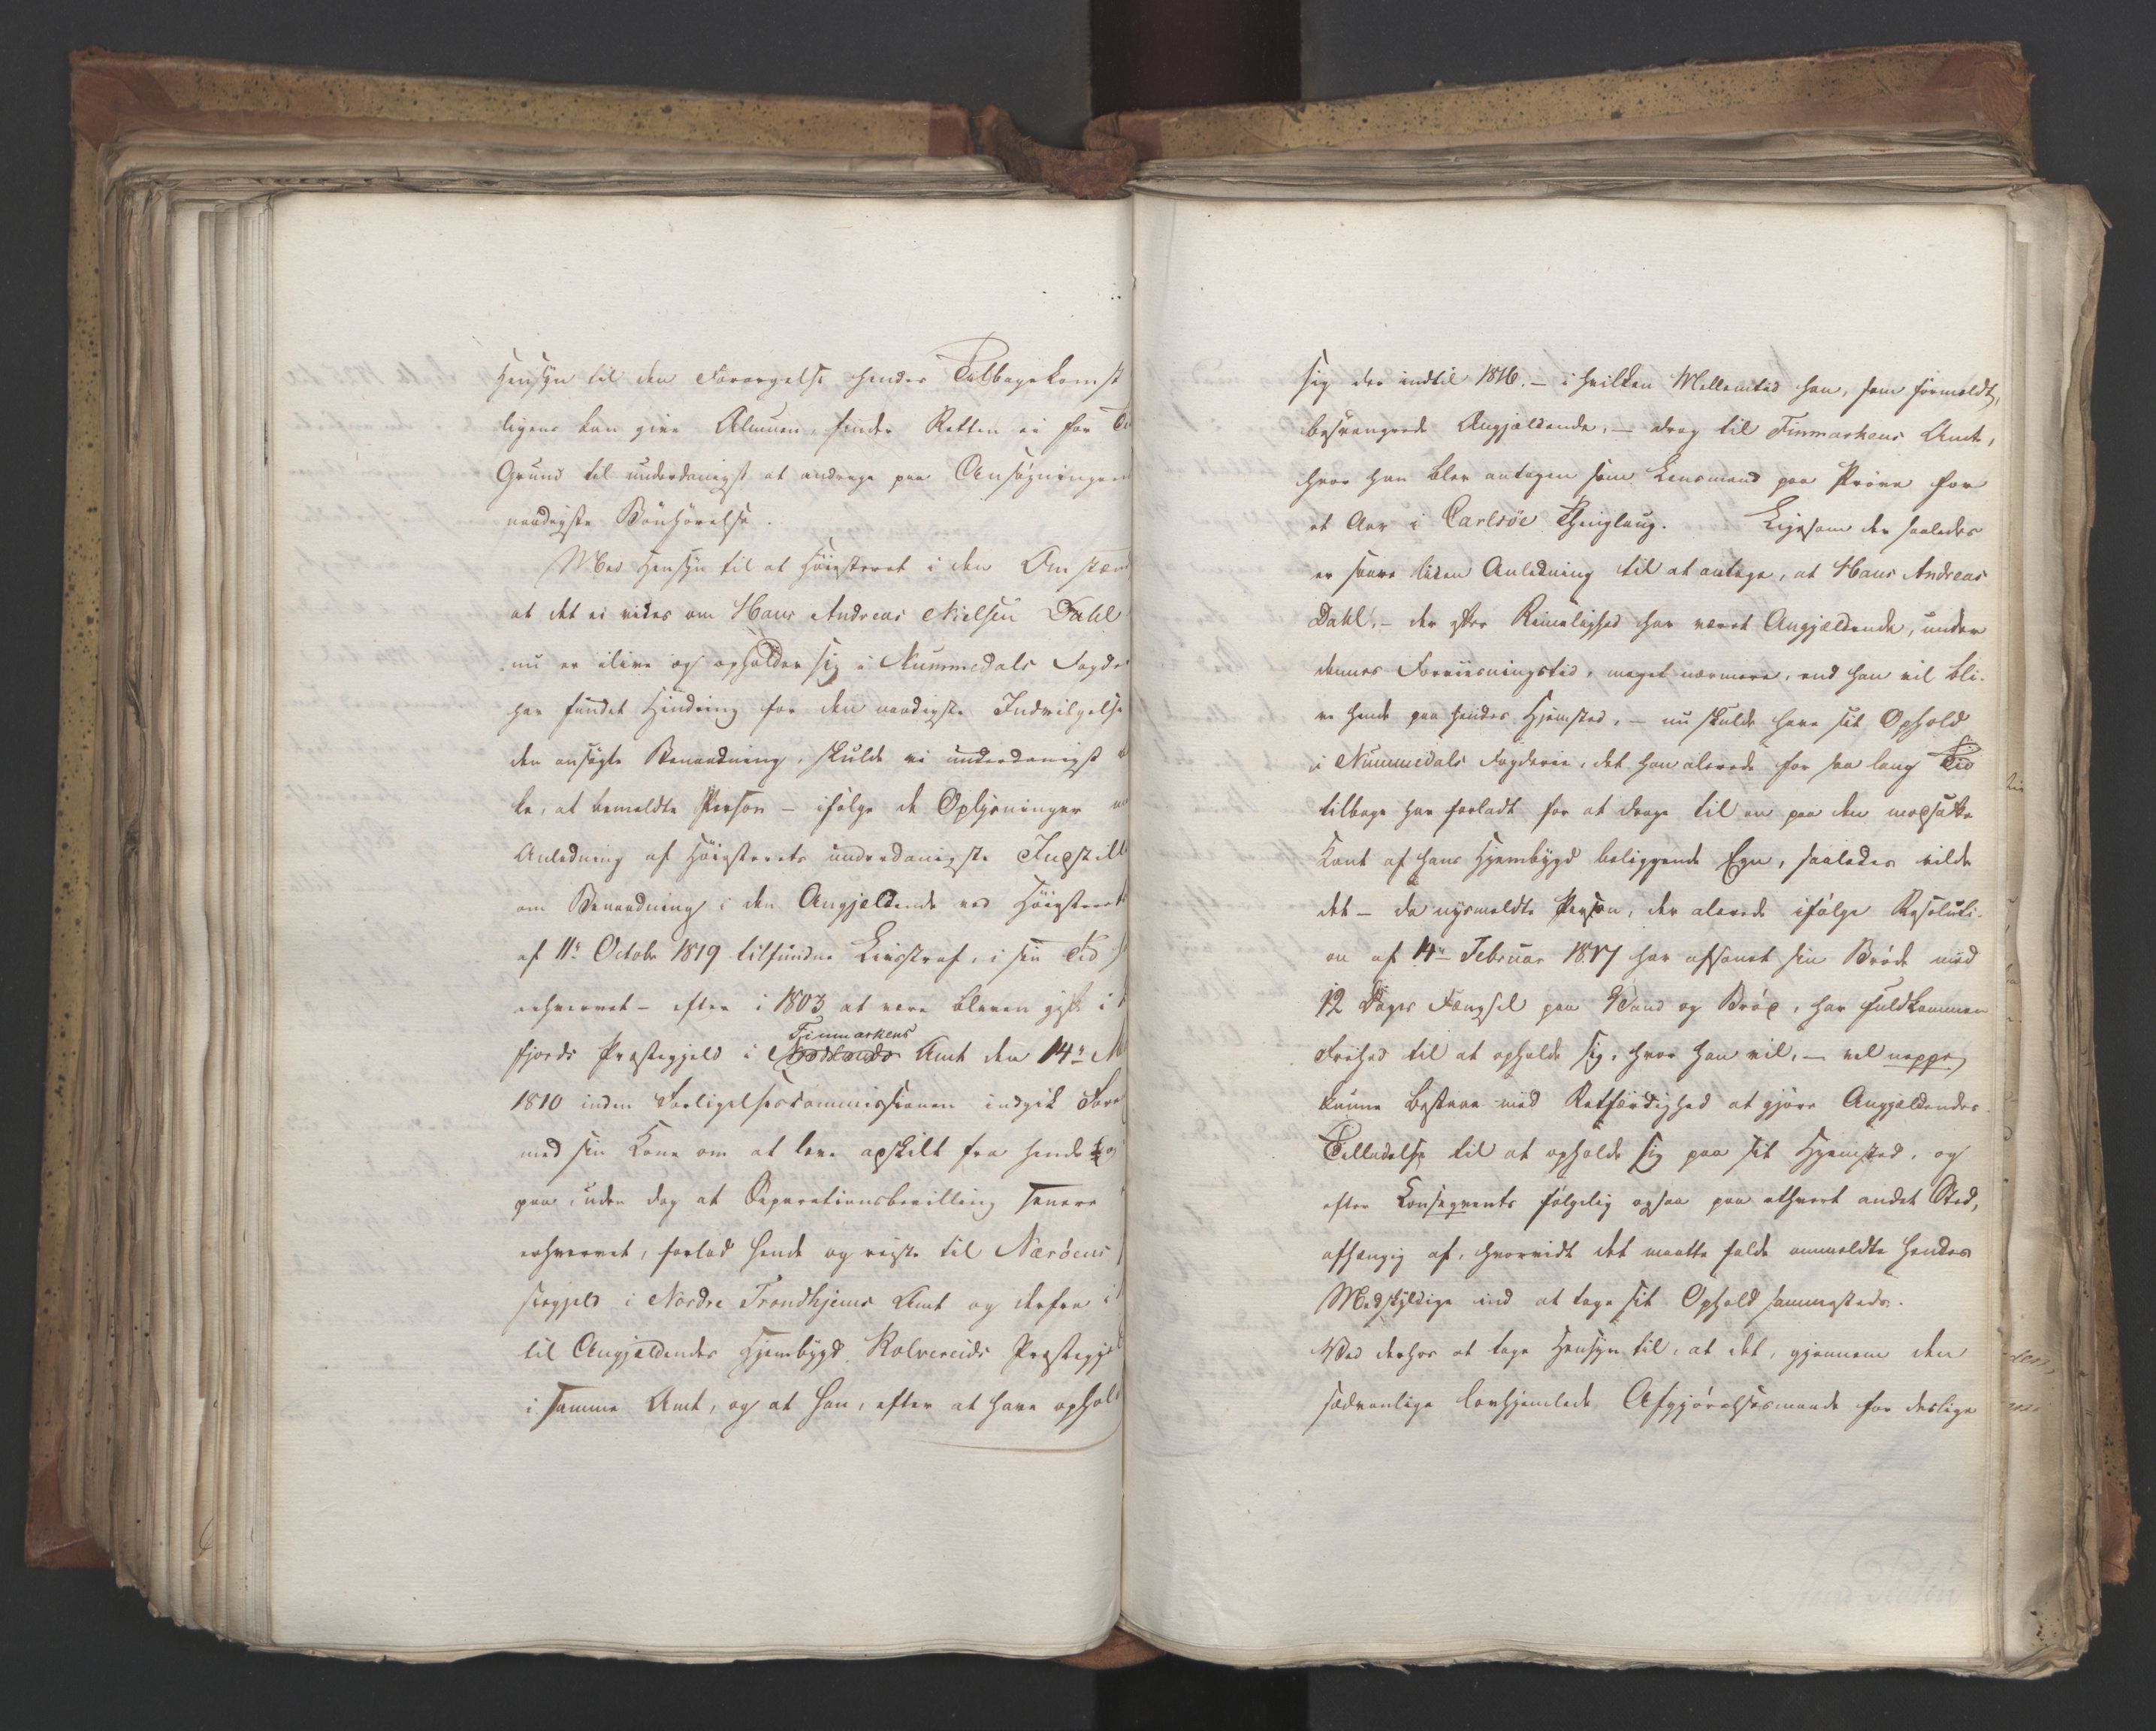 Hensyn til den Forargelse hendes Tilbagekomst
ligens kan give Almuen, finder Retten ei for
Grund til underdanigst at andrage paa Ansøgningens
naadigste Bønhørelse.
Med Hensyn til at Høiesteret i den Omstæn
at det ei vides om Hans Andreas Nielsen Dahl
nu er ilive og opholder sig i Nummedals Fogde
har fundet Hindring for den naadigste Indvilgelse
den ansøgte Benaadning, skulde vi underdanigst
ke, at bemeldte Person – ifølge de Oplysninger
Anledning af Høiesterets underdanigste Indstill
om Benaadning i den Angjældende ved Høiesterets
af 11te Octobr 1819 tilfundne Livsstraf, i sin Tid
erhvervet – efter i 1803 at være bleven gift i
fjords Præstegjeld i Finmarkens Amt den 14de
1810 inden Forligelsescommissionen indgik Fore
med sin Kone om at leve adskilt fra hende og
paa, uden dog at Separationsbevilling senere
erhvervet, forlod hende og reiste til Nærøens
stegjeld i Nordre Trondhjems Amt og derfra i
til Angjældendes Hjembygd, Kolvereids Præstegje
i samme Amt, og at han, efter at have ophold
sig der indtil 1816. – i hvilken Mellemtid han, som formeldt,
besvangrede Angjældende, – drog til Finmarkens Amt,
hvor han blev antagen som Lensmand paa Prøve for
et Aar i Carlsöe Thinglaug. Ligesom der saaledes
er saare liden Anledning til at antage, at Hans Andreas
Dahl, – der efter Rimelighed har været Angjældende, under
dennes Forviisningstid, meget nærmere, end han vil bli-
ve hende paa hendes Hjemsted, – nu skulde have sit Ophold
i Nummedals Fogderie, det han allerede for saa lang Tid
tilbage har forladt for at drage til en paa den modsatte
Kant af hans Hjembygd beliggende Egn, saaledes vilde
det – da nysmeldte Person, der allerede ifølge Resoluti-
on af 14de Februar 1817 har afsonet sin Brøde med
12 Dages Fængsel paa Vand og Brød, har fuldkommen
Frihed til at opholde sig, hvor han vil, – vel neppe
kunne bestaae med Retfærdighed at gjøre Angjældendes
Tilladelse til at opholde sig paa sit Hjemsted, og
efter Konseqvents følgelig ogsaa paa ethvert andet Sted,
afhængig af, hvorvidt det maatte falde ommeldte hendes
Medskyldige ind at tage sit Ophold sammesteds.
Ved derhos at tage Hensyn til, at det, gjennem den
sædvanlige lovhjemlede Afgjørelsesmaade for deslige